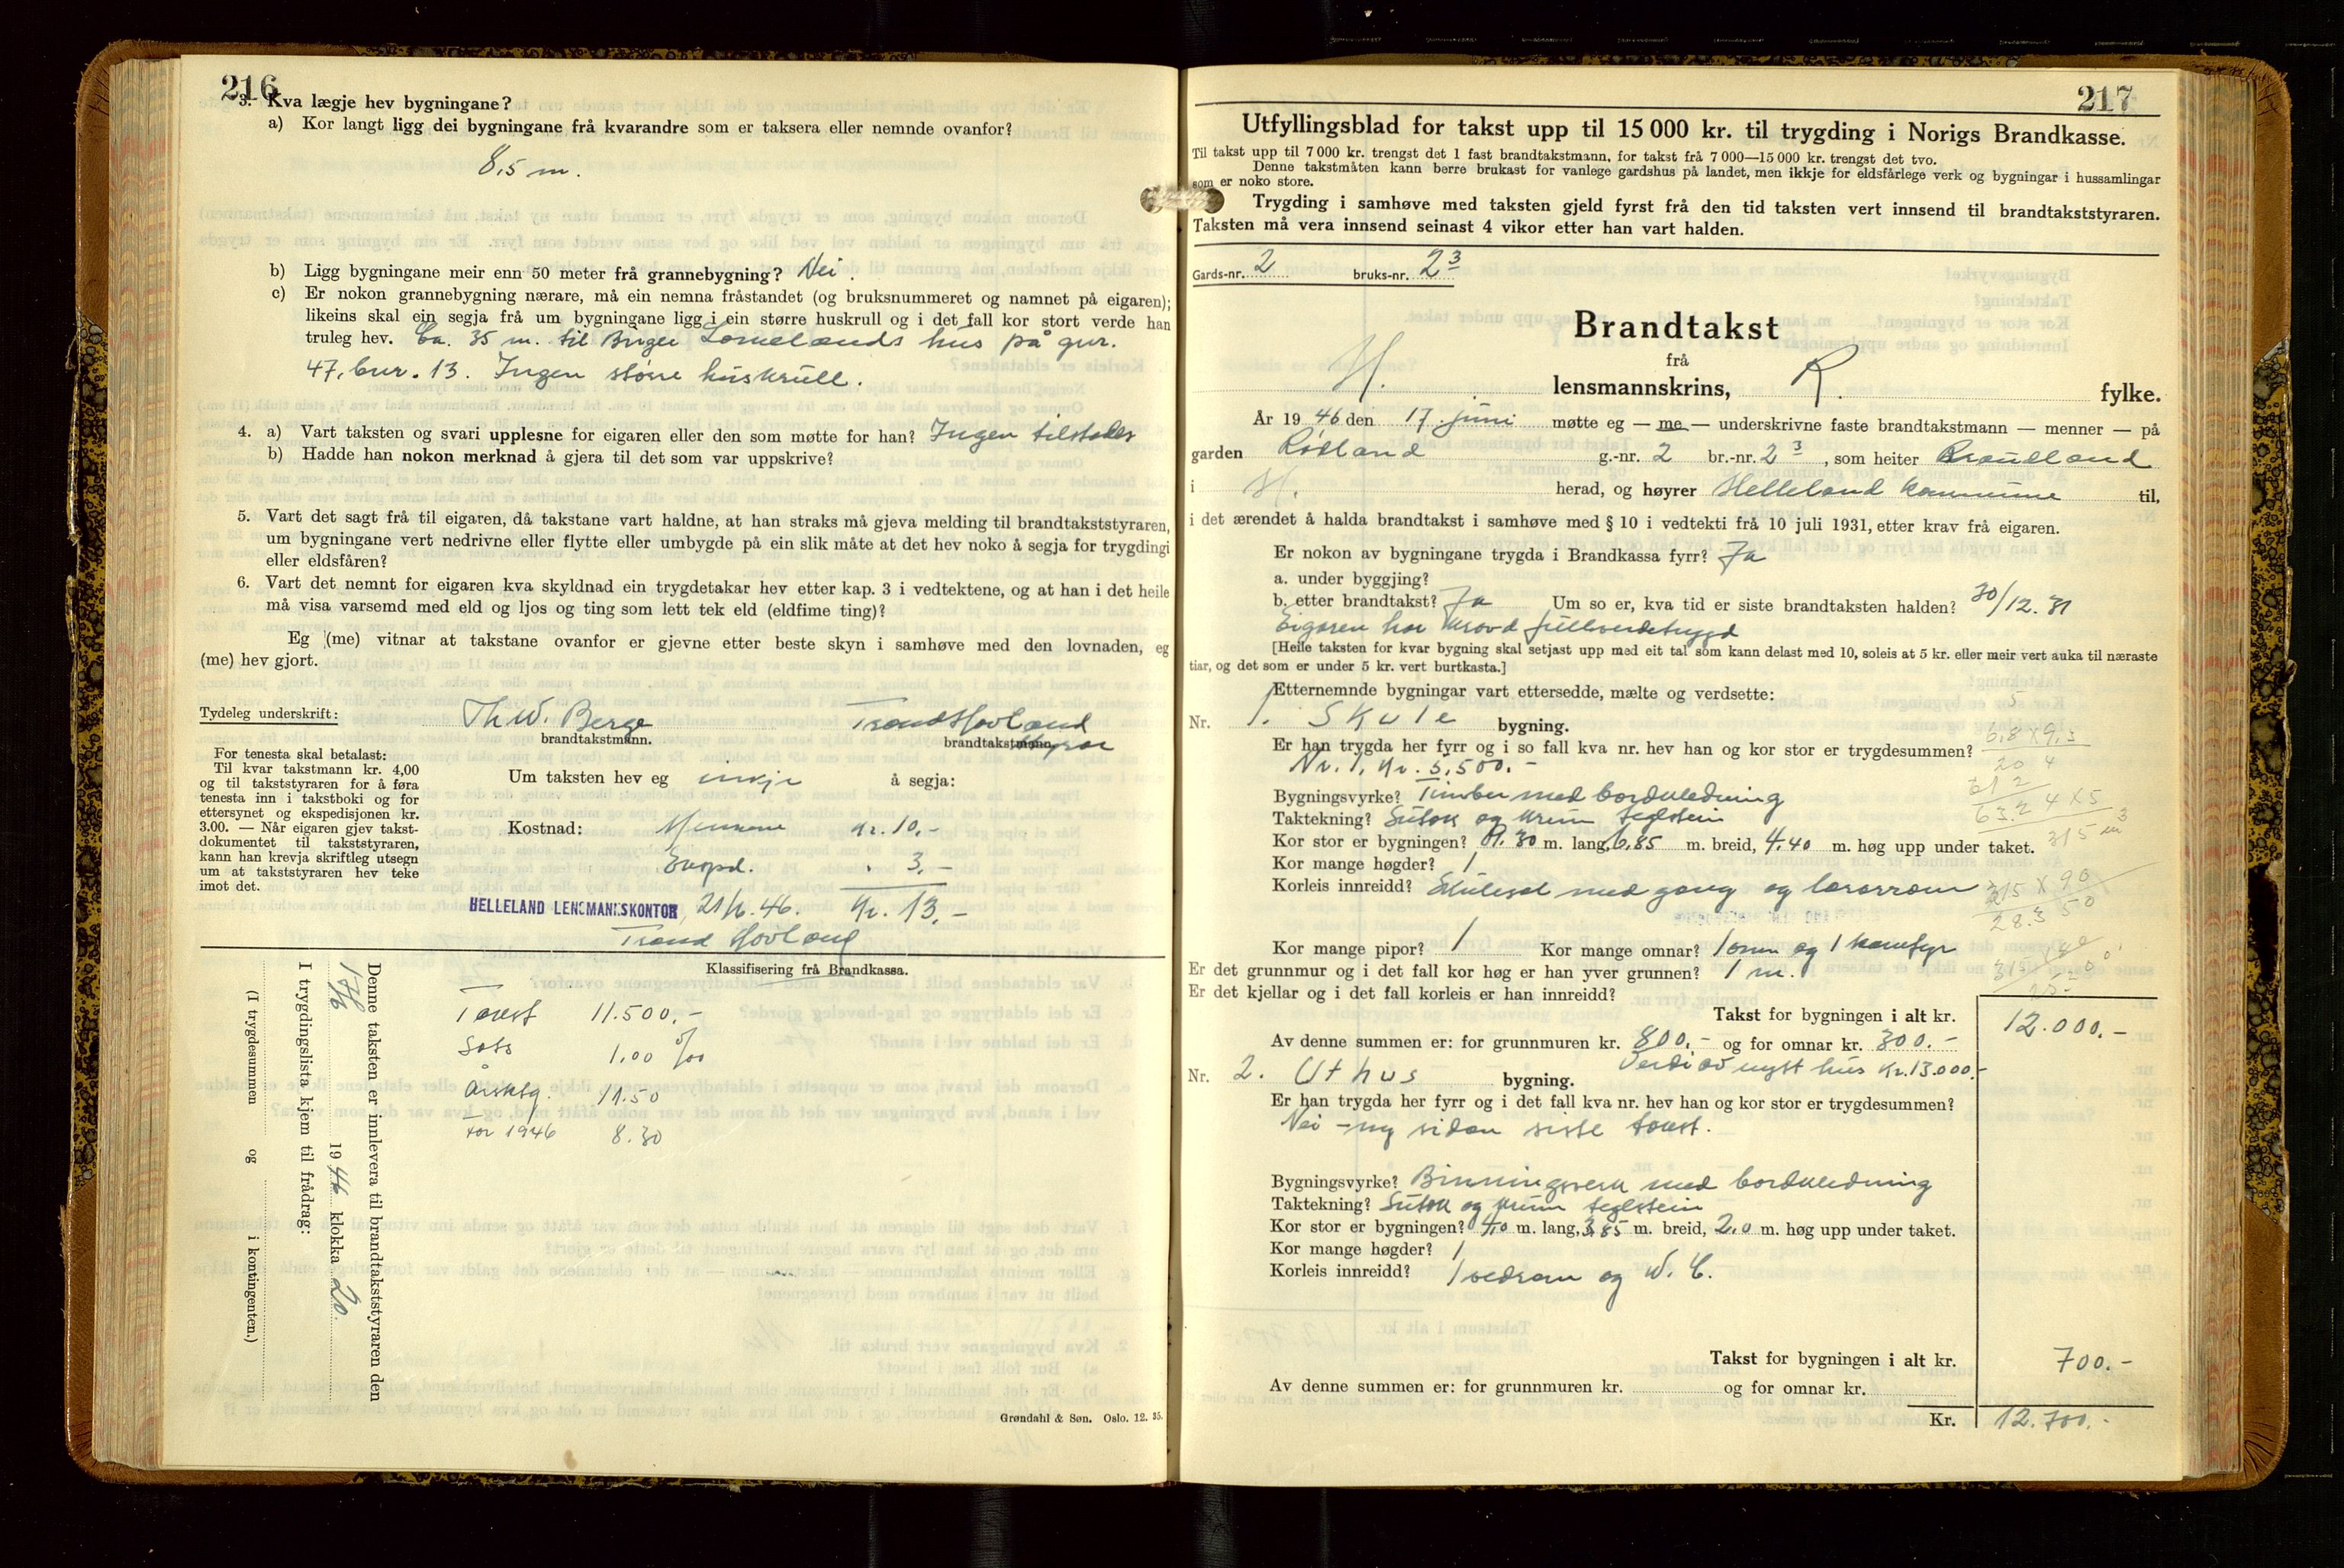 216
3. Kva lægje hev bygningane?
a) Kor langt ligg dei bygningane frå kvarandre som er taksera eller nemnde ovanfor?
8,5 m.
b) Ligg bygningane meir enn 50 meter frå grannebygning? Nei.
c) Er nokon grannebygning nærare, må ein nemna fråstandet (og bruksnummeret og namnet på eigaren);
likeins skal ein segja frå um bygningane ligg i ein større huskrull og i det fall kor stort verde han
truleg hev. Ca. 35 m. til Birger Lomelands hus på gnr.
47, bnr. 13. Ingen större huskrull.
4. a) Vart taksten og svari upplesne for eigaren eller den som møtte for han? Ingen tilstades
b) Hadde han nokon merknad å gjera til det som var uppskrive?
5. Vart det sagt frå til eigaren, då takstane vart haldne, at han straks må gjeva melding til brandtakststyraren,
um bygningane vert nedrivne eller flytte eller umbygde på ein slik måte at det hev noko å segja for trygdingi
eller eldsfåren?
6. Vart det nemnt for eigaren kva skyldnad ein trygdetakar hev etter kap. 3 i vedtektene, og at han i det heile
må visa varsemd med eld og ljos og ting som lett tek eld (eldfime ting)?
Eg (me) vitnar at takstane ovanfor er gjevne etter beste skyn i samhøve med den lovnaden, eg
(me) hev gjort.
Tydeleg underskrift: Th W. Berge Trond Hovland
brandtakstmann. brandtakststyrar
For tenesta skal betalast:
Til kvar takstmann kr. 4,00
og til takststyraren for å føra
tenesta inn i takstboki og for
ettersynet og ekspedisjonen kr.
3.00. — Når eigaren gjev takst-
dokumentet til takststyraren,
kann han krevja skriftleg utsegn
um at takststyraren hev teke
imot det.
Um taksten hev eg inkje å segja:
Kostnad: Mennene kr. 10.-
Exspd. . 3.-
HELLELAND LENSMANNSKONTOR, 21/6.46. Kr. 13.-
Trond Hovland
Klassifisering frå Brandkassa.
Denne taksten er innlevera til brandtakststyraren den
17/6 1946 klokka 20.
I trygdingslista kjem til frådrag:
(I trygdesummen og i kontingenten.)
Takst 11.500.-
Sats 1.00 ‰
Årsktg. 11.50
for 1946 8.30
Grøndahl & Søn. Oslo. 12. 35.
217
Utfyllingsblad for takst upp til 15 000 kr. til trygding i Norigs Brandkasse.
Til takst upp til 7 000 kr. trengst det 1 fast brandtakstmann, for takst frå 7 000—15 000 kr. trengst det tvo.
Denne takstmåten kann berre brukast for vanlege gardshus på landet, men ikkje for eldsfårlege verk og bygningar i hussamlingar
som er noko store.
Trygding i samhøve med taksten gjeld fyrst frå den tid taksten vert innsend til brandtakststyraren.
Taksten må vera innsend seinast 4 vikor etter han vart halden.
Gards-nr. 2 bruks-nr. 2 3
Brandtakst
frå
H. lensmannskrins, R. fylke.
År 1946 den 17. juni møtte eg — me — underskrivne faste brandtakstmann — menner — på
garden g.-nr. 2 br.-nr. 2 3, som heiter
i H. herad, og høyrer Helleland kommune til,
i det ærendet å halda brandtakst i samhøve med § 10 i vedtekti frå 10 juli 1931, etter krav frå eigaren.
Er nokon av bygningane trygda i Brandkassa fyrr? Ja
a. under byggjing?
b. etter brandtakst? Ja Um so er, kva tid er siste brandtaksten halden? 30/12.31
Eigaren har krevd fullverdetrygd
[Heile taksten for kvar bygning skal setjast upp med eit tal som kann delast med 10, soleis at 5 kr. eller meir vert auka til næraste
tiar, og det som er under 5 kr. vert burtkasta.]
Etternemnde bygningar vart ettersedde, mælte og verdsette:
Nr. 1. Skule bygning.
Er han trygda her fyrr og i so fall kva nr. hev han og kor stor er trygdesummen?
Nr. 1, kr. 5,500.-
Bygningsvyrke? Timber med bordkledning
Taktekning? Sutak og krum teglstein
Kor stor er bygningen? 9.30 m. lang, 6,85 m. breid, 4.40 m. høg upp under taket.
Kor mange høgder? 1
Korleis innreidd? Skulesal med gang og lærarrom
6.8 X 9.3
20 4
61 2
63.24 X 5
315 m3
315 X 90
28.350
Kor mange pipor? 1 Kor mange omnar? 1 omn og 1 komfyr
Er det grunnmur og i det fall kor høg er han yver grunnen? 1 m.
Er det kjellar og i det fall korleis er han innreidd?
Takst for bygningen i alt kr. 12.000.-
Av denne summen er: for grunnmuren kr. 800.- og for omnar kr. 300.-
Verdi av nytt hus kr. 13.000.-
Nr. 2. Uthus bygning.
Er han trygda her fyrr og i det fall kva nr. hev han og kor stor er trygdesummen?
Nei - ny sidan siste takst.
Bygningsvyrke? Binningsverk med bordkledning
Taktekning? Sutak og krum teglstein
Kor stor er bygningen? 4,0 m. lang, 3,85 m. breid, 2,0 m. høg upp under taket.
Kor mange høgder? 1
Korleis innreidd? 1 vedrom og W. C.
Takst for bygningen i alt kr. 700.-
Av denne summen er: for grunnmuren kr. og for omnar kr.
Kr. 12.700.-